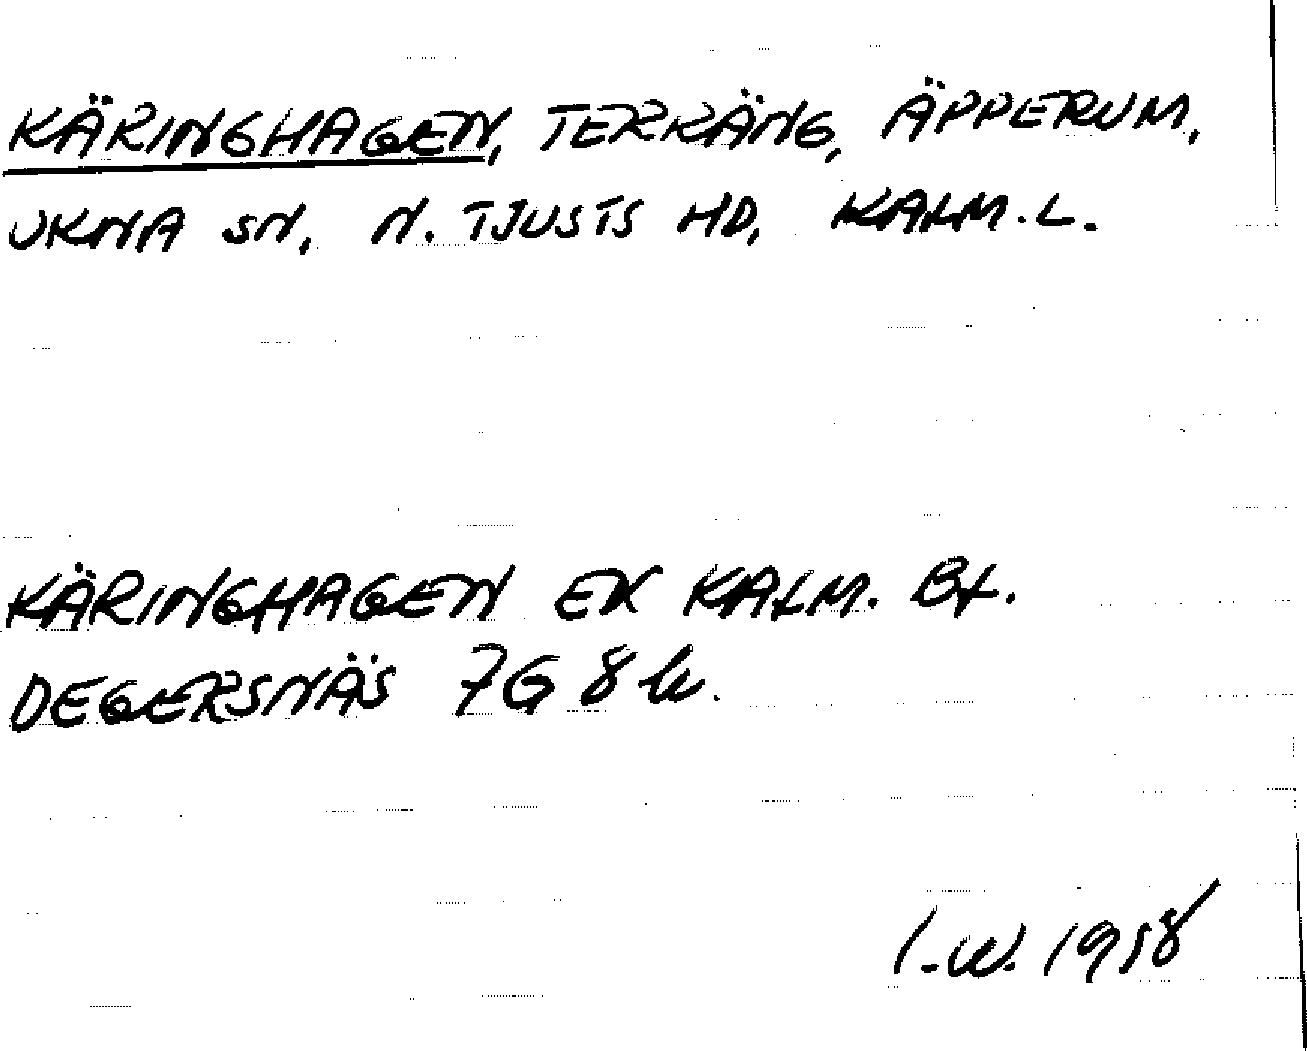 KÄRINGHAGEN, TERRÄNG, ÄPPERUM,
UKNA SN, N. TJUSTS HD, KALM. L.
KÄRINGHAGEN EK KALM. BL.
DEGERSNÄS 7G 8 h.
I.W. 1958